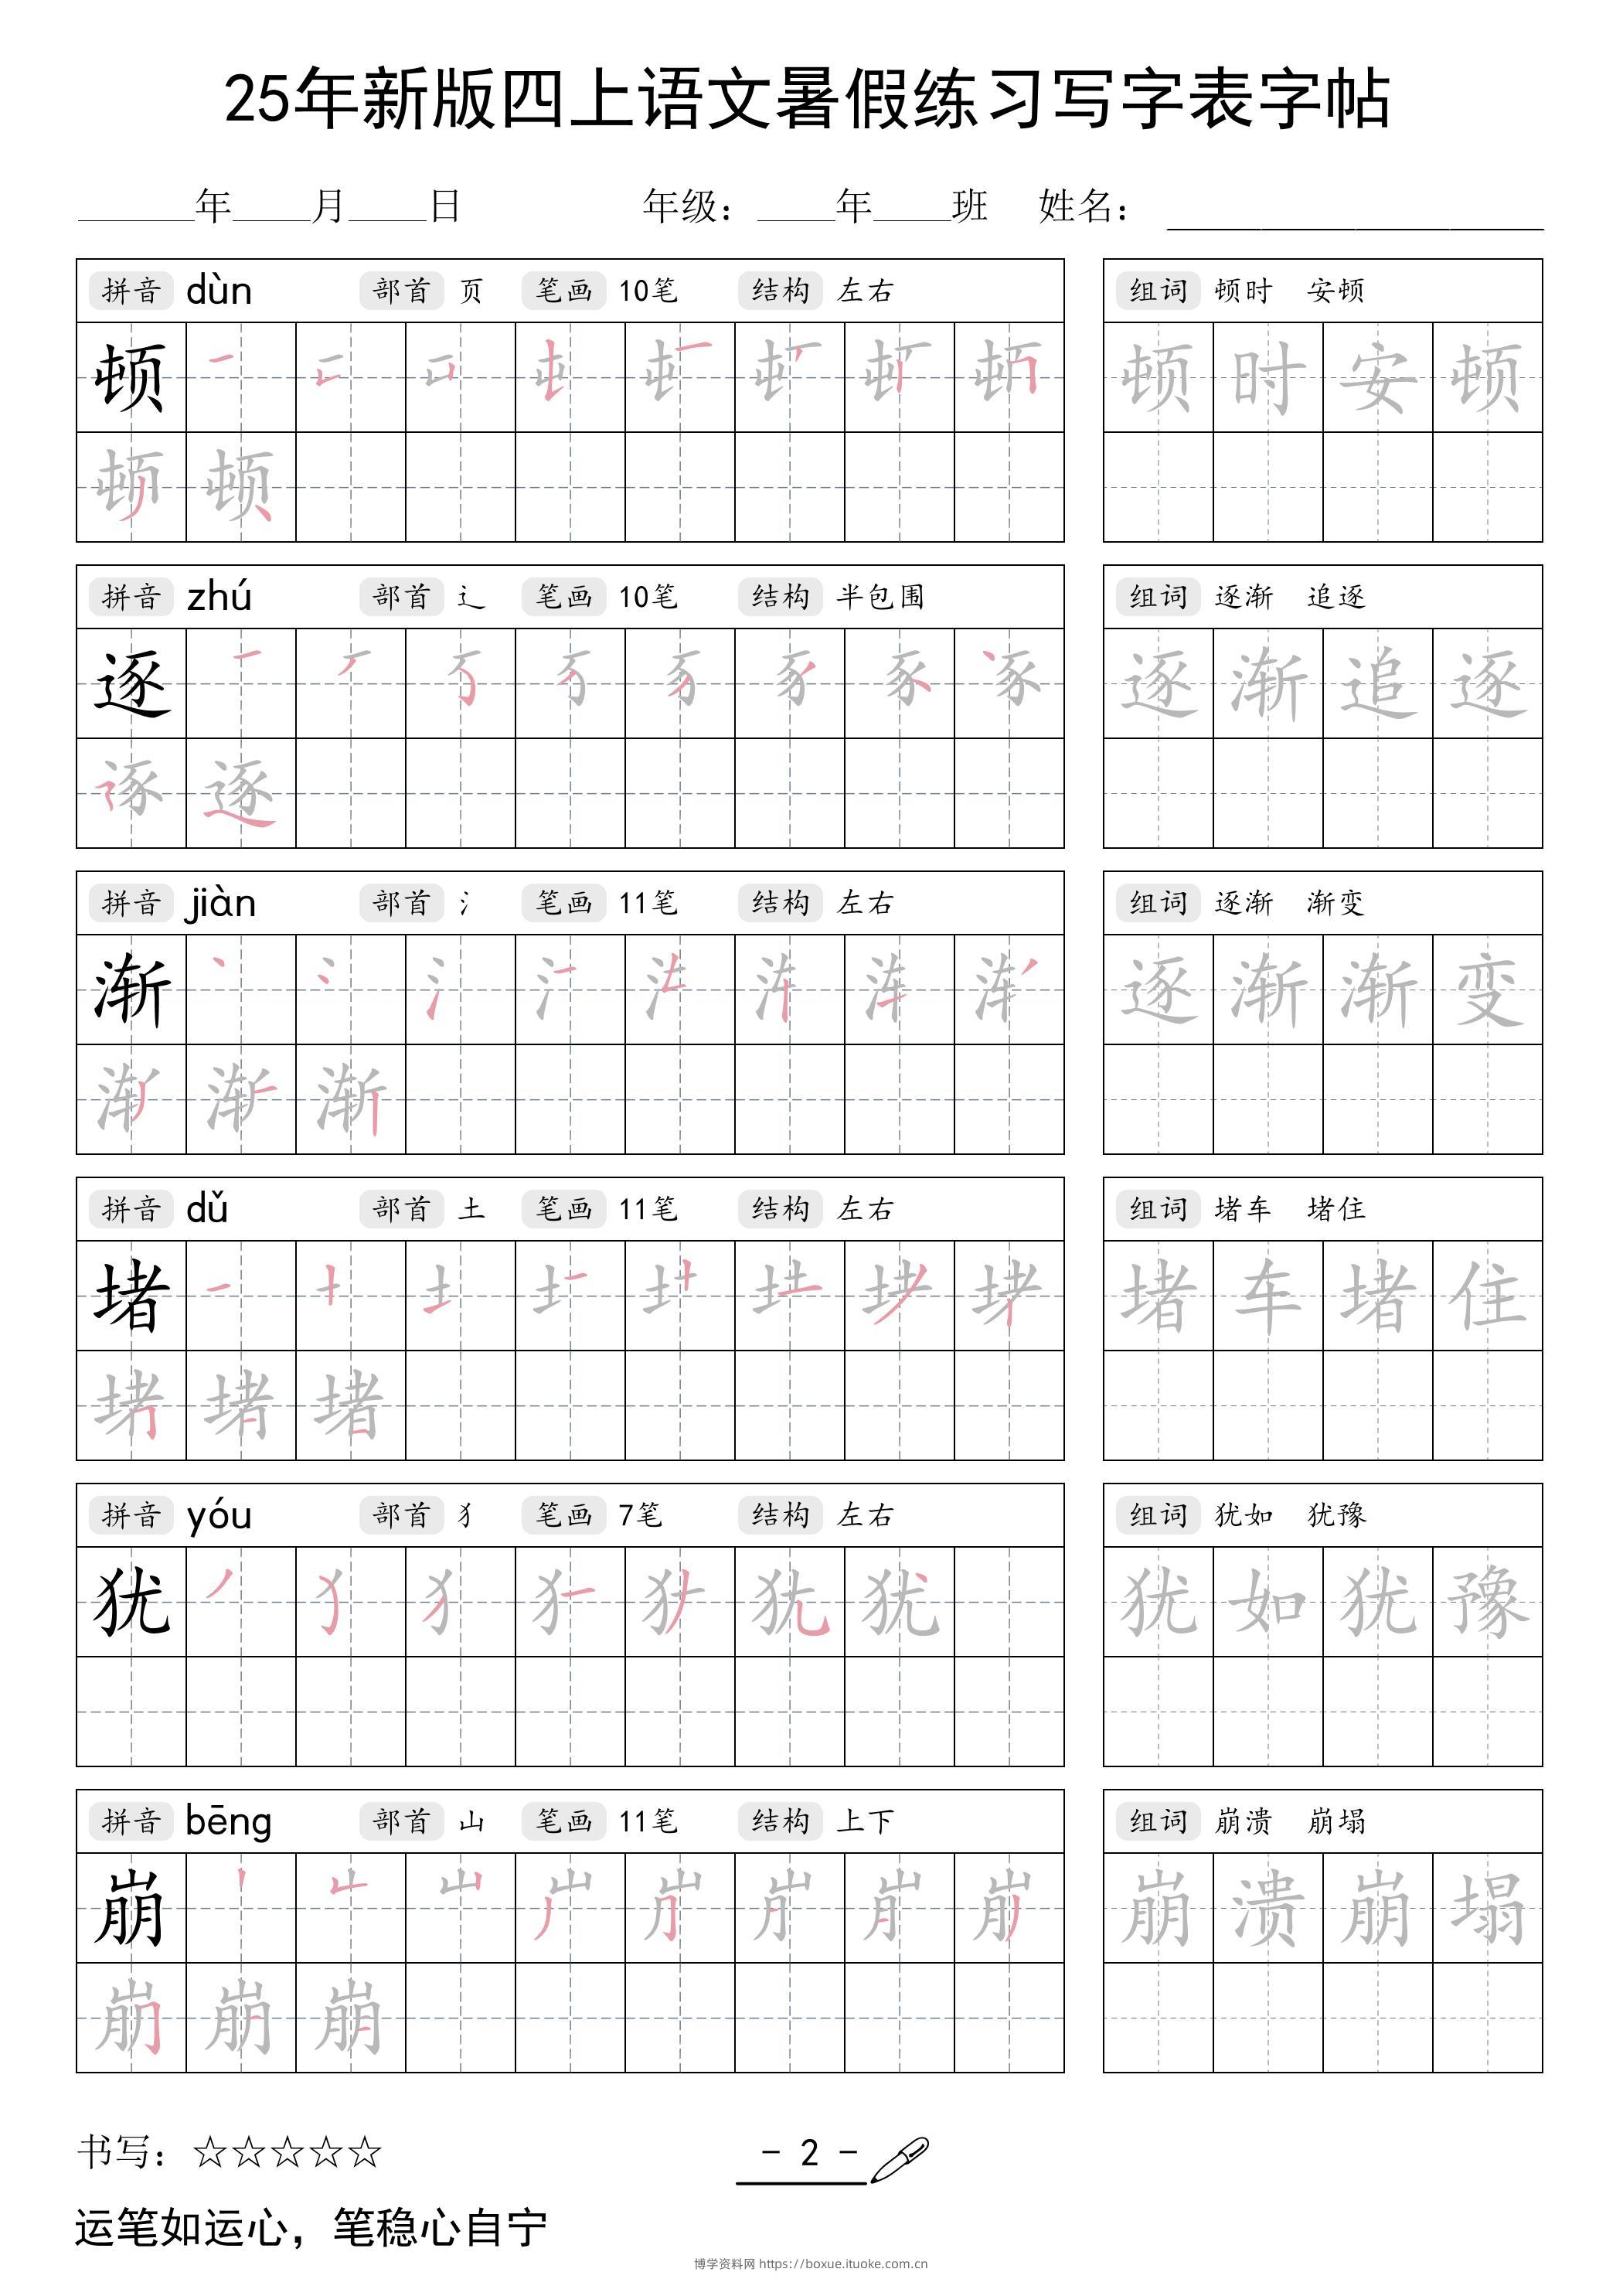 25年新版四上语文暑假练习写字表字帖
______年____月____日 年级：____年____班 姓名：
拼音 dùn 部首 页 笔画 10笔 结构 左右 组词 顿时 安顿
顿 顿时安顿
顿
拼音 zhú 部首 辶 笔画 10笔 结构 半包围 组词 逐渐 追逐
逐 逐渐追逐
逐
拼音 jiàn 部首 氵 笔画 11笔 结构 左右 组词 逐渐 渐变
渐 逐渐渐变
渐
拼音 dǔ 部首 土 笔画 11笔 结构 左右 组词 堵车 堵住
堵 堵车堵住
堵
拼音 yóu 部首 犭 笔画 7笔 结构 左右 组词 犹如 犹豫
犹 犹 犹如犹豫
拼音 bēng 部首 山 笔画 11笔 结构 上下 组词 崩溃 崩塌
崩 崩溃崩塌
崩
书写：☆☆☆☆☆ - 2 -
运笔如运心，笔稳心自宁
博学资料网 https://boxue.ituoke.com.cn